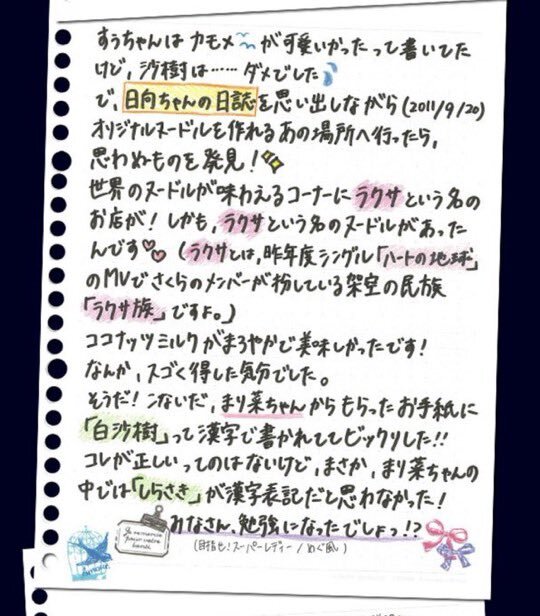 すぅちゃんは カモメ が可愛いかったって書いてた
けど、沙樹は……ダメでした
で、日向ちゃんの日誌を思い出しながら(2011/9/20)
オリジナルヌードルを作れるあの場所へ行ったら、
思わぬものを発見!
世界のヌードルが味わえるコーナーにラクサという名の
お店が!しかも、ラクサという名のヌードルがあった
んです♡♡(ラクサとは、昨年度シングル「ハートの地球」
のMVでさくらのメンバーが扮している架空の民族
「ラクサ族」ですよ。)
ココナッツミルクがまろやかで美味しかったです!
なんか、スゴく得した気分でした。
そうだ!こないだ、まり菜ちゃんからもらったお手紙に
「白沙樹」って漢字で書かれててビックリした!!
コレが正しいってのはないけど、まさか、まり菜ちゃんの
中では「しらさき」が漢字表記だと思わなかった!
みなさん、勉強になったでしょっ!?
(目指せ!スーパーレディー/めぐ風)